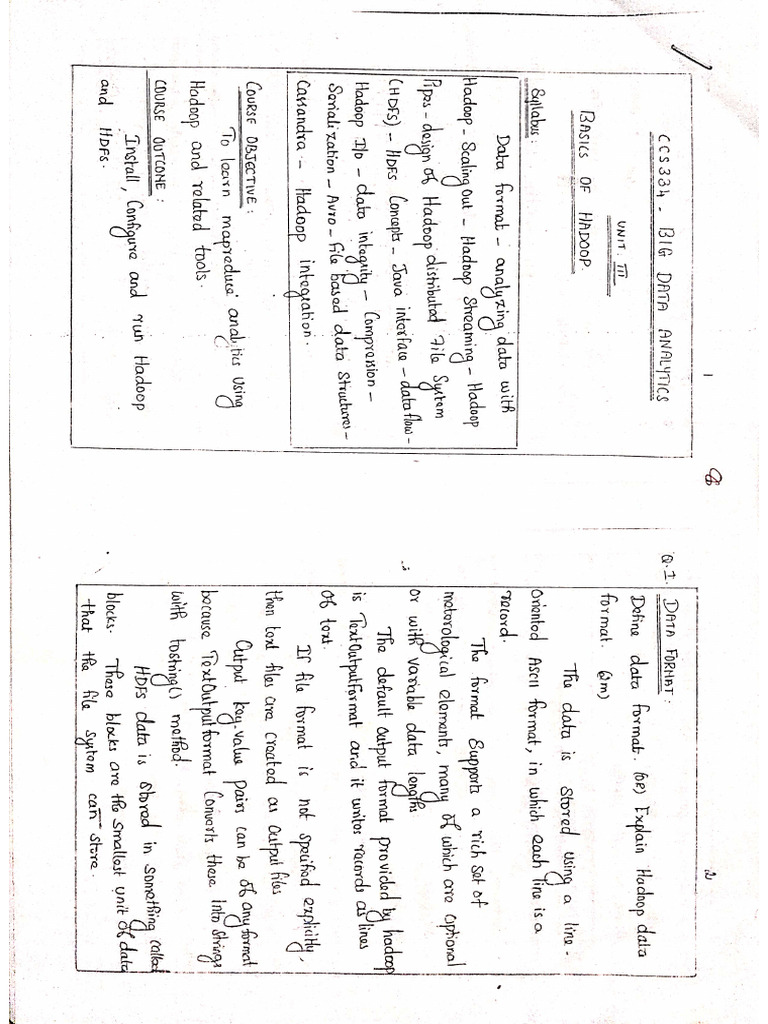 1
CCS334 - BIG DATA ANALYTICS
UNIT. III
BASICS OF HADOOP.
Syllabus:
Data format - analyzing data with
Hadoop - Scaling out - Hadoop Streaming - Hadoop
Pipes - design of Hadoop distributed File System
(HDFS) - HDFS Concepts - Java interface - data flow -
Hadoop I/o - data integrity - Compression -
Serialization - Avro - file based data Structures -
Cassandra - Hadoop integration.
COURSE OBJECTIVE:
To learn mapreduce analytics Using
Hadoop and related tools.
COURSE OUTCOME:
Install, Configure and run Hadoop
and HDFS.
2
Q.1. DATA FORMAT:
Define data format. (OR) Explain Hadoop data
format. (2m)
The data is stored using a line-
Oriented ASCII format, in which each line is a
record.
The format Supports a rich set of
meterological elements, many of which are optional
or with variable data lengths
The default output format provided by hadoop
is TextOutputFormat and it writes records as lines
of text.
If file format is not specified explicitly,
then text files are created as output files
Output key-value pairs can be of any format
because TextOutputformat Converts these into strings
with tostring() method.
HDFS data is stored in something called
blocks. These blocks are the smallest unit of data
that the file system can store.